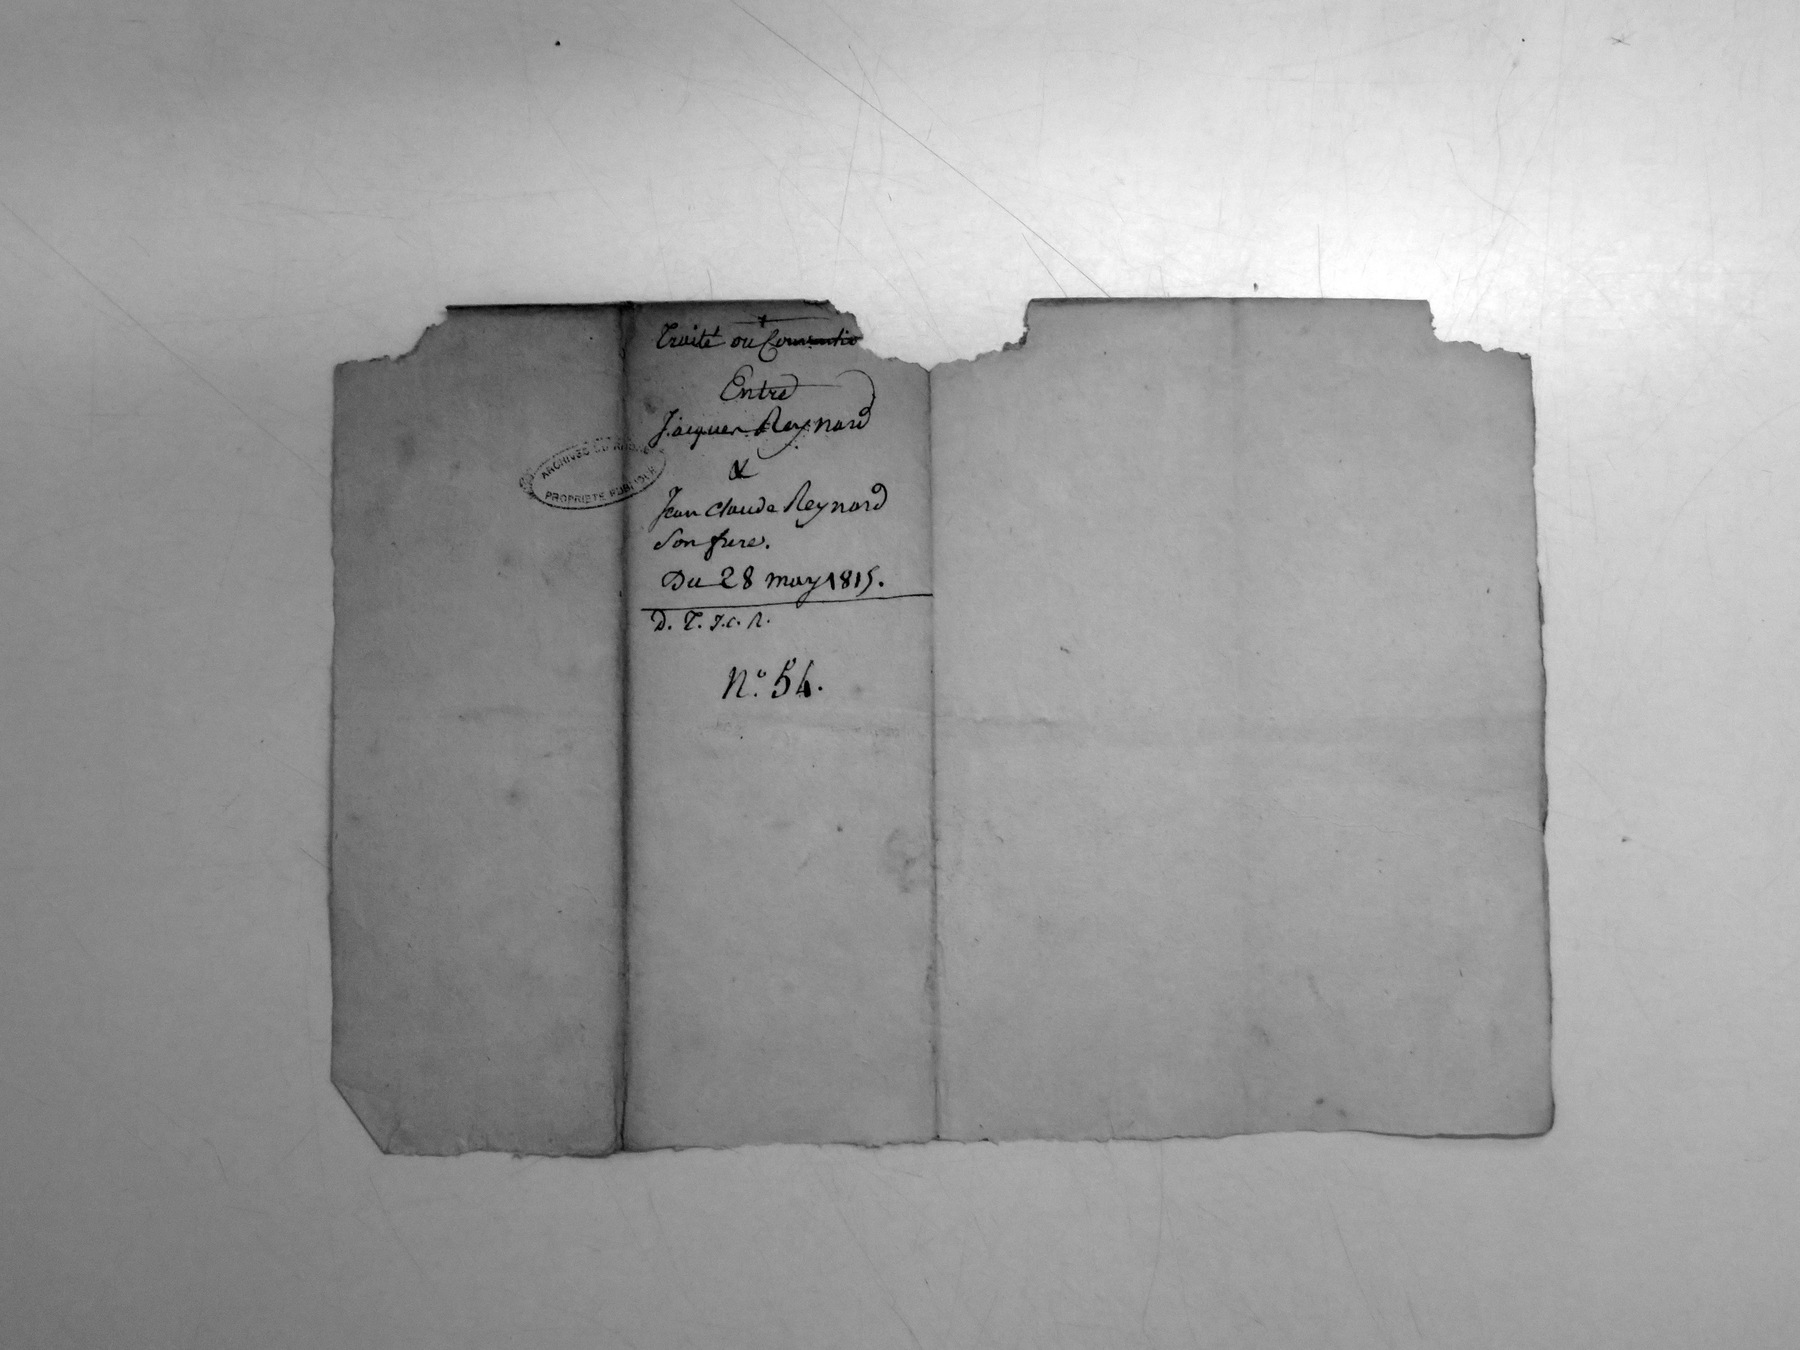 Traité ou Conventio
Entre
Jacques Reynard
&
Jean claude Reynard
Son frere.
Du 28 may 1815.
D. T. J. C. R.
N.º 54.
ARCHIVES DU RHÔNE
PROPRIÉTÉ PUBLIQUE